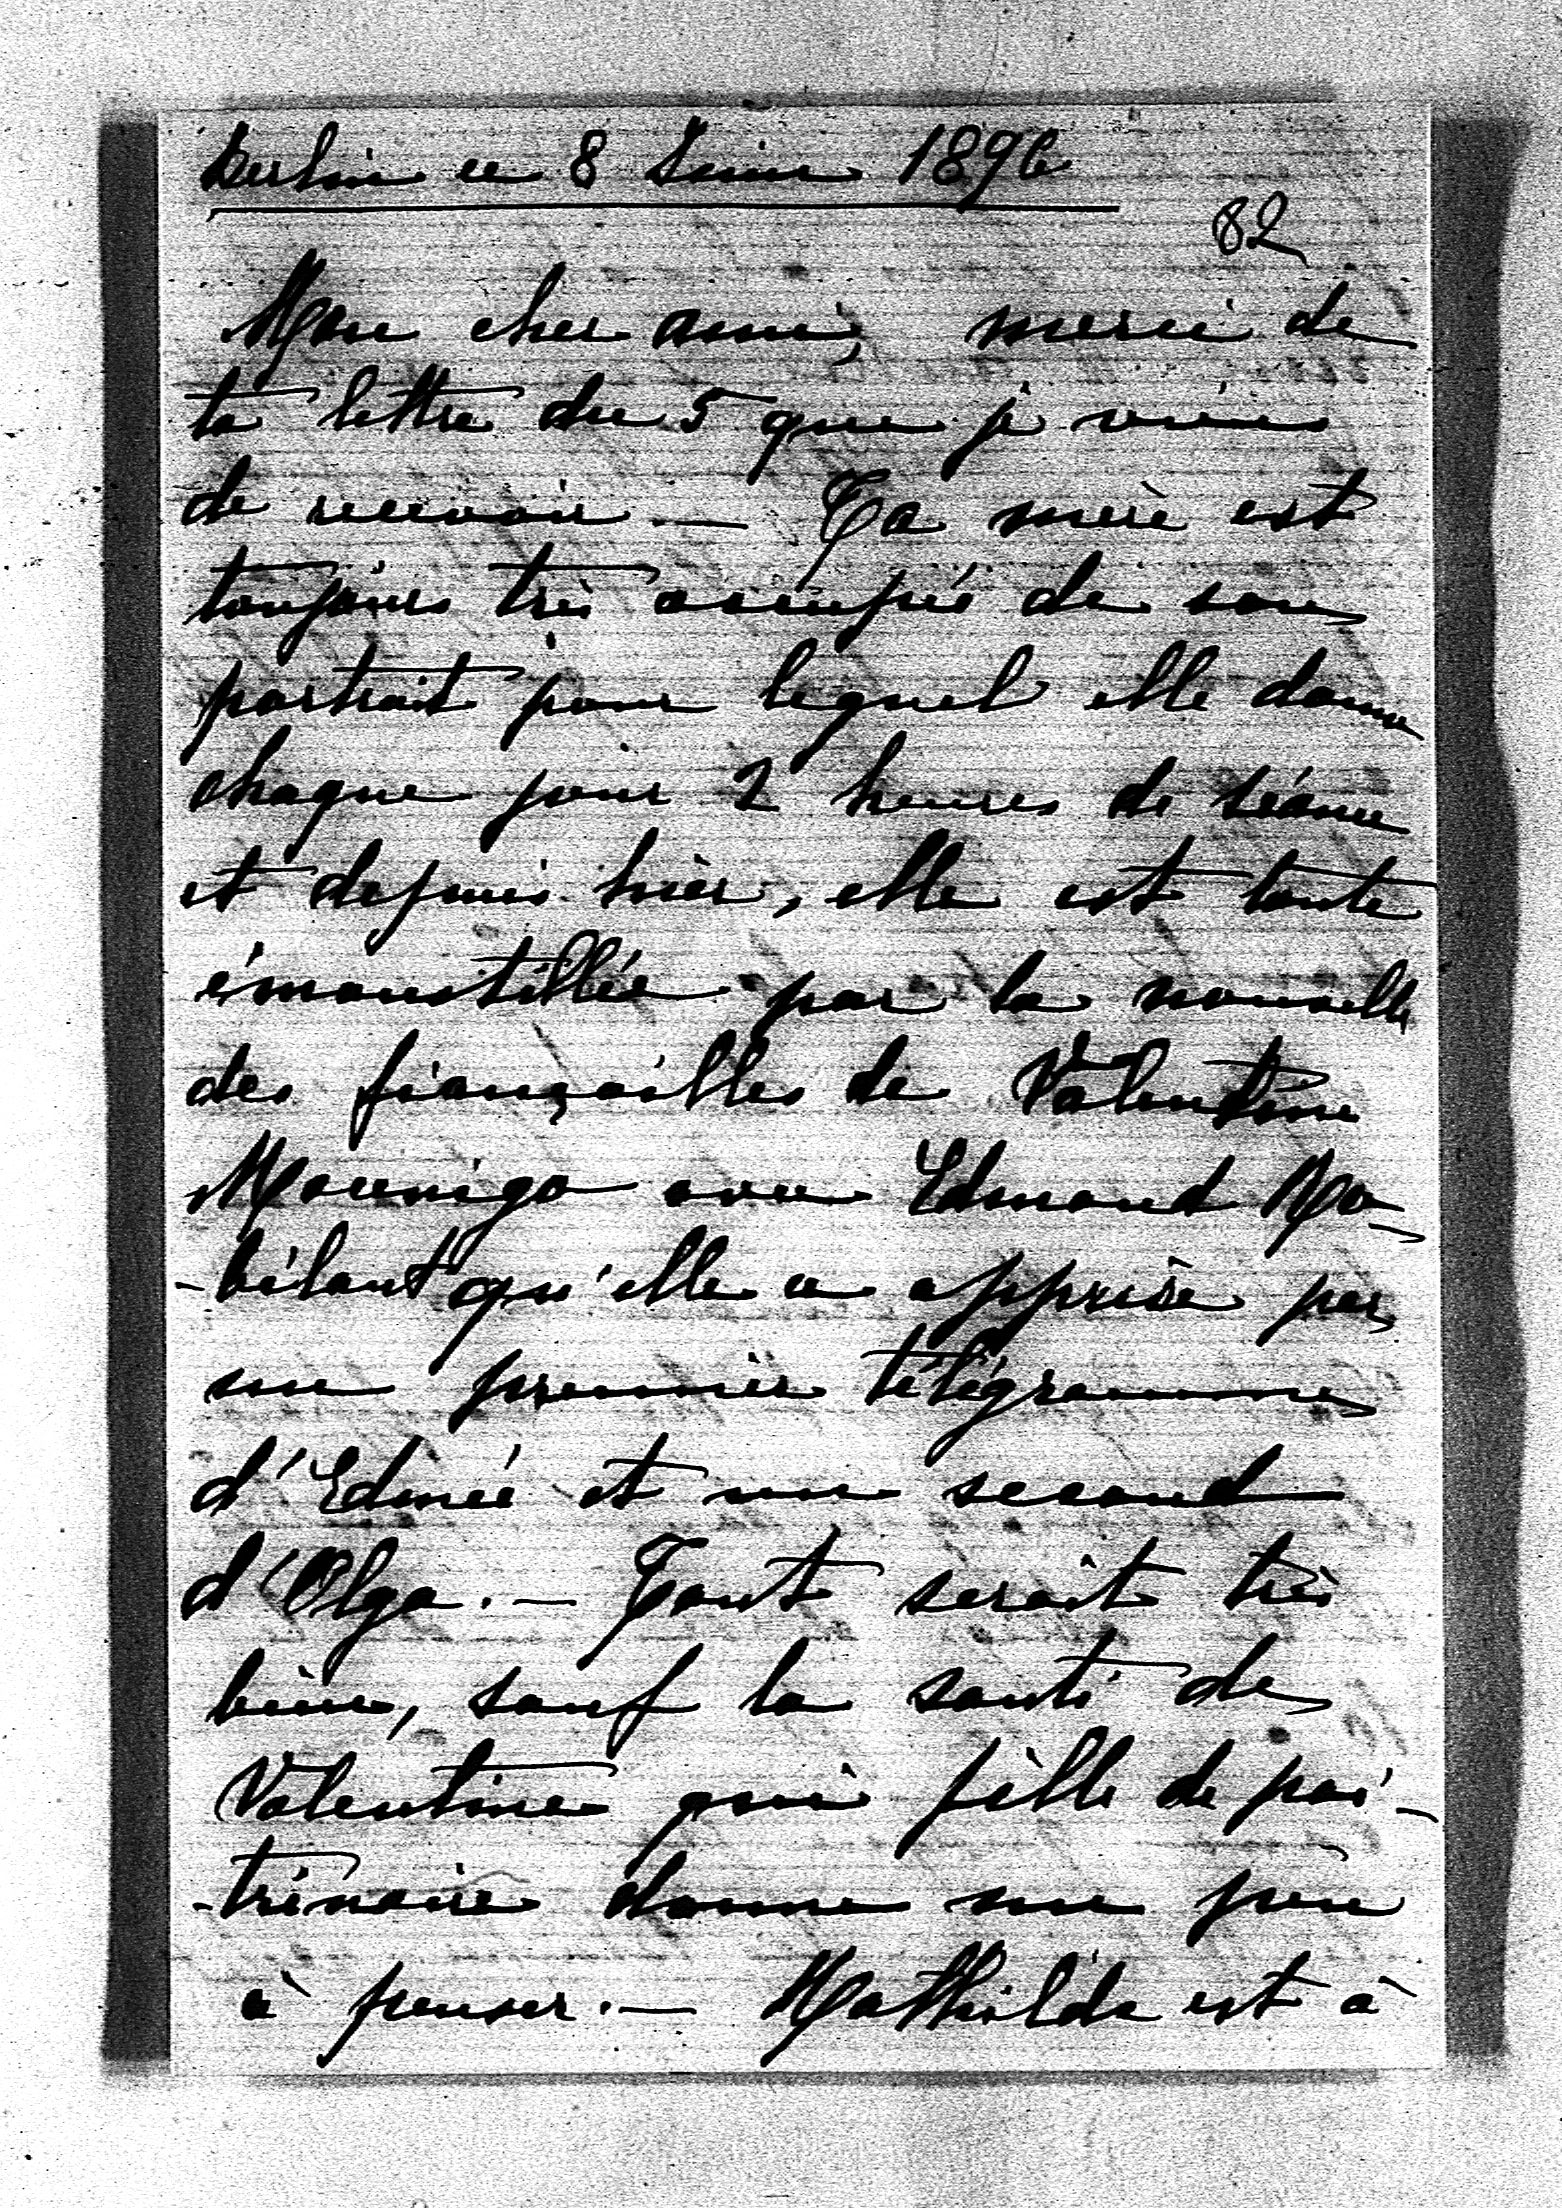 Berlin ce 8 Juin 1896
82
Mon cher ami, merci de
ta lettre du 5 que je viens
de recevoir — Ta mère est
toujours très occupée de son
portrait pour lequel elle donne
chaque jour 2 heures de séance
et depuis hier, elle est toute
émoustillée par la nouvelle
des fiançailles de Valentine
Mocenigo avec Edmond Ro-
-bilant qu'elle a apprise par
un premier télégramme
d'Edmée et un second
d'Olga. — Tout serait très
bien, sauf la santé de
Valentine qui fille de poi-
-trinaire donne un peu
à penser. — Mathilde est à